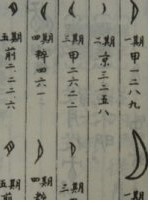 一期 甲一二八九
二期 京三二五八
三期 甲二六二二
四期 粹四六一
五期 前二.二二六
一期
三期
四期
五期 前